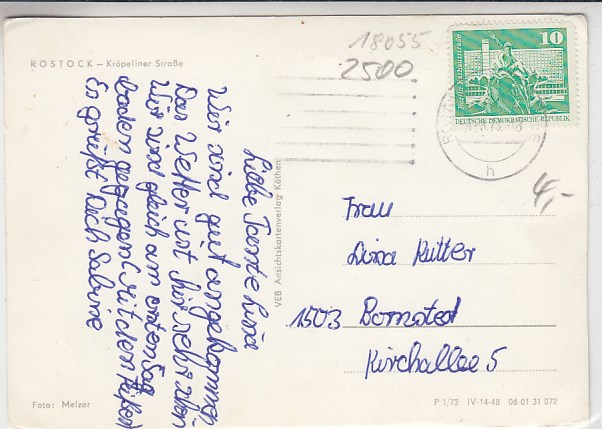 ROSTOCK – Kröpeliner Straße
18055
2500
10
DEUTSCHE DEMOKRATISCHE REPUBLIK
h
4,-
Liebe Tante Lina
Wir sind gut angekommen
Das Wetter ist hier sehr schön
Wir sind gleich am ersten Tag
baden gegangen
Es grüßt Dich Sabine
VEB Ansichtskartenverlag Köthen
Frau
Lina Rutter
1503 Bornstedt
Kirchallee 5
Foto: Melzer
P 1/75 IV-14-48 06 01 31 072